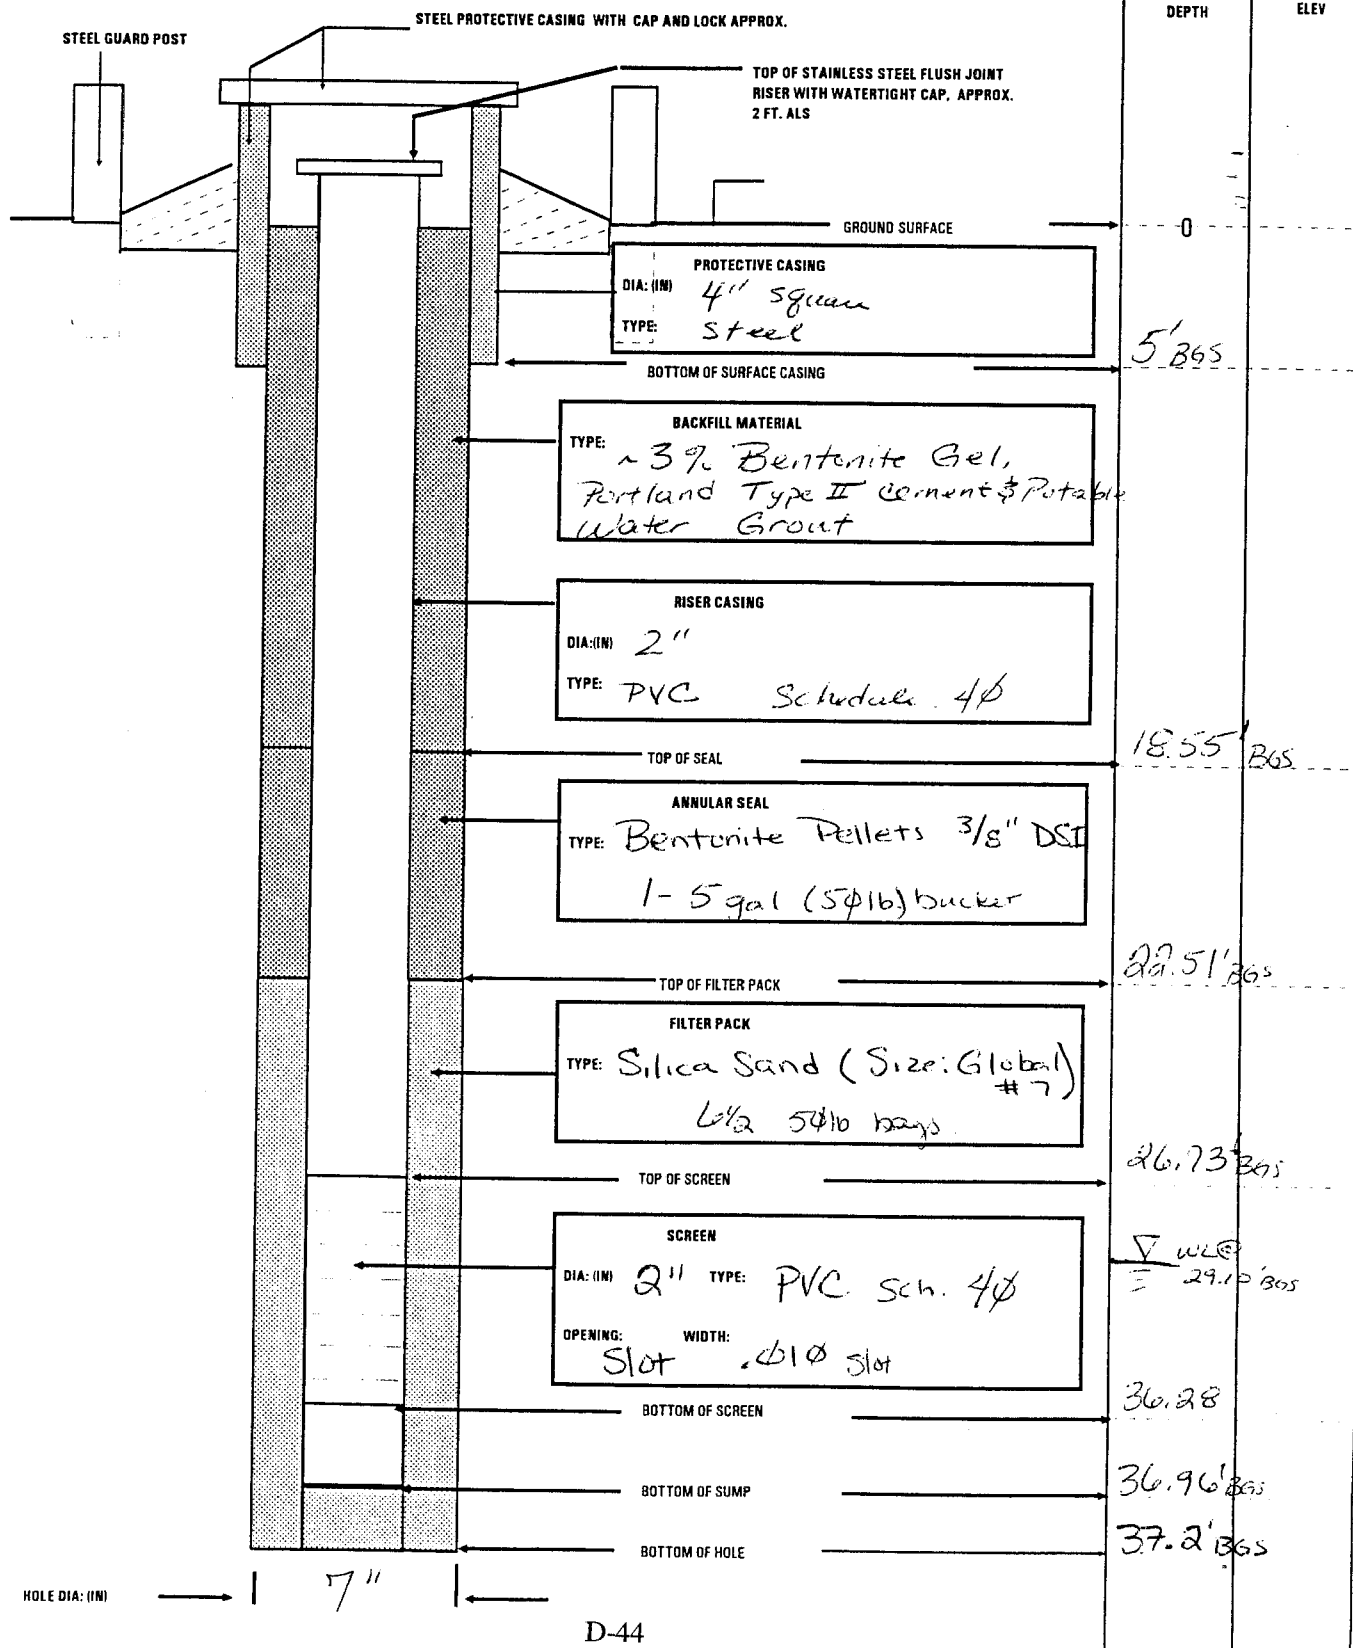 DEPTH ELEV
STEEL PROTECTIVE CASING WITH CAP AND LOCK APPROX.
STEEL GUARD POST
TOP OF STAINLESS STEEL FLUSH JOINT
RISER WITH WATERTIGHT CAP, APPROX.
2 FT. ALS
GROUND SURFACE 0
PROTECTIVE CASING
DIA: (IN) 4" square
TYPE: Steel
BOTTOM OF SURFACE CASING 5' BGS
BACKFILL MATERIAL
TYPE: ~3% Bentonite Gel,
Portland Type II cement & Potable
Water Grout
RISER CASING
DIA:(IN) 2"
TYPE: PVC Schedule 4∅
TOP OF SEAL 18.55' BGS
ANNULAR SEAL
TYPE: Bentonite Pellets 3/8" DSI
1- 5 gal (5∅lb) bucket
TOP OF FILTER PACK 22.51' BGS
FILTER PACK
TYPE: Silica Sand (Size: Global
#7)
6½ 5∅lb bags
TOP OF SCREEN 26.73' BGS
SCREEN
WL@
29.10' BGS
DIA: (IN) 2" TYPE: PVC Sch. 4∅
OPENING: Slot WIDTH: .∅1∅ Slot
BOTTOM OF SCREEN 36.28
BOTTOM OF SUMP 36.96' BGS
BOTTOM OF HOLE 37.2' BGS
HOLE DIA: (IN) 7"
D-44